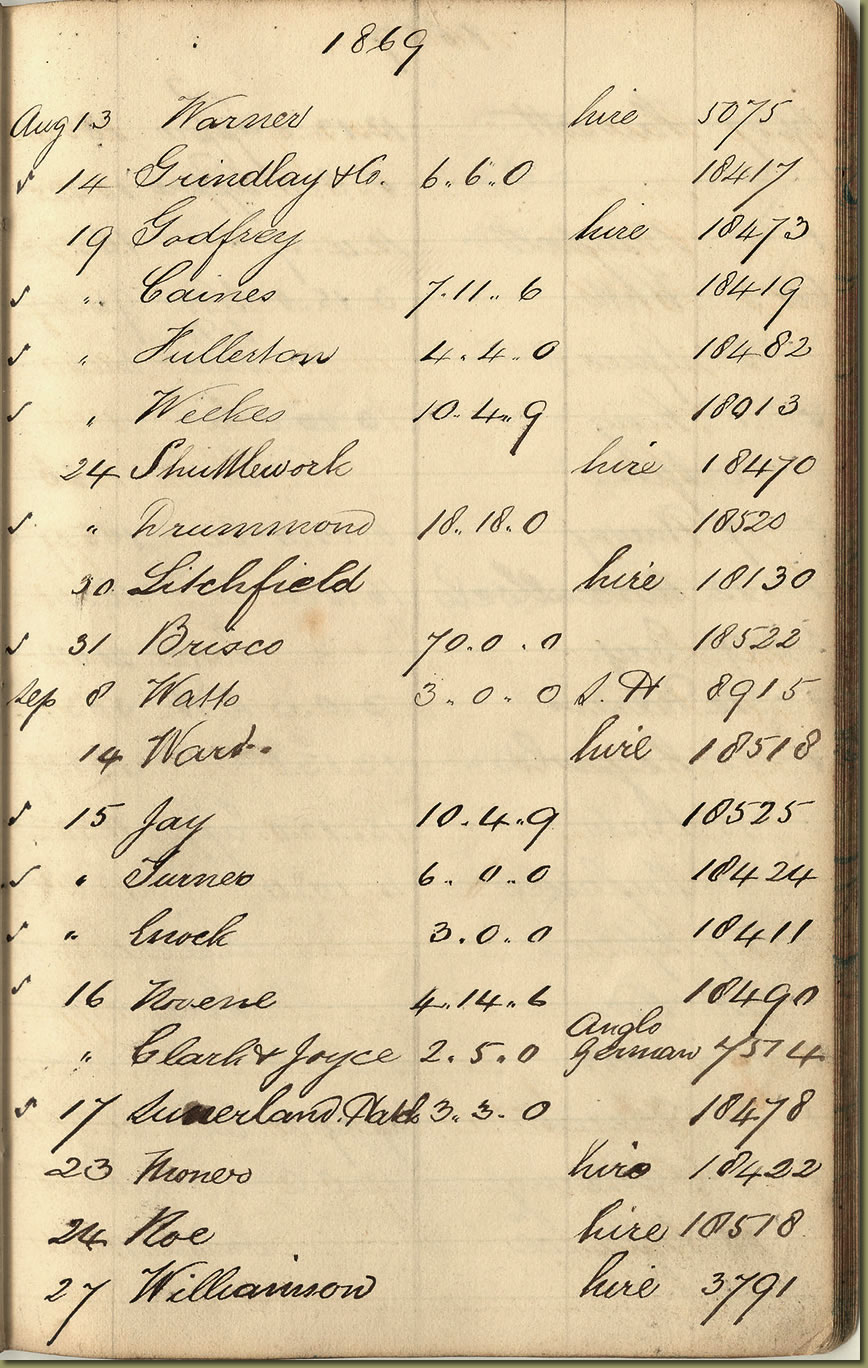 1869
Aug 13 Warner hire 5075
✓ 14 Grindlay & Co. 6.. 6.. 0 18417
19 Godfrey hire 18473
✓ " Caines 7. 11.. 6 18419
✓ " Fullerton 4. 4.. 0 18482
✓ " Weekes 10. 4.. 9 18013
24 Shuttlework hire 18470
✓ " Drummond 18. 18. 0 18520
30 Litchfield hire 18130
✓ 31 Brisco 70. 0. 0 18522
Sep 8 Watts 3.. 0.. 0 S. H 8915
14 Ward.. hire 18518
✓ 15 Jay 10. 4.. 9 18525
✓ " Turner 6.. 0.. 0 18424
✓ " Enock 3. 0.. 0 18411
✓ 16 4. 14. 6 18490
Anglo
" Clark & Joyce 2. 5. 0 German 7514
✓ 17 3.. 3. 0 18478
23 hire 18422
24 Roe hire 18518
27 Williamson hire 3791